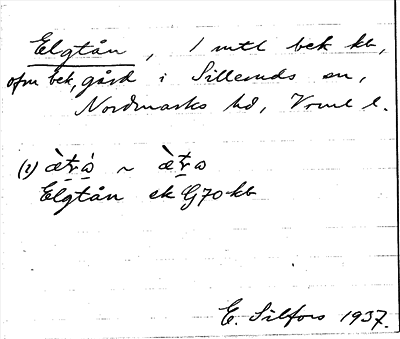 Elgtån, 1 mtl bek kb,
ofm bek, gård i Silleruds sn,
Nordmarks hd, Vrml l.
Elgtån ek G70-kb
E. Silfors 1937.